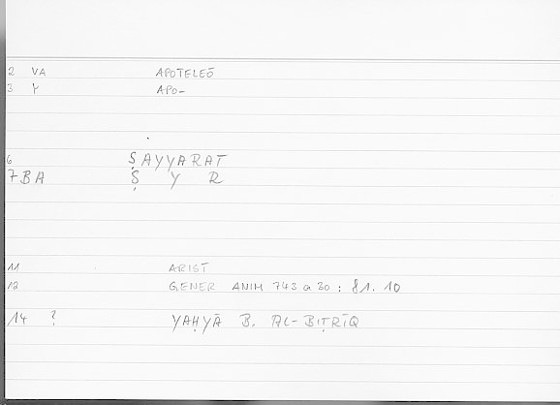 2 VA APOTELEŌ
3 Y APO-
6 ṢAYYARAT
7 BA Ṣ Y R
11 ARIST
12 GENER ANIM 743 a 30 : 81. 10
14 ? YAḤYĀ B. AL-BIṬRĪQ